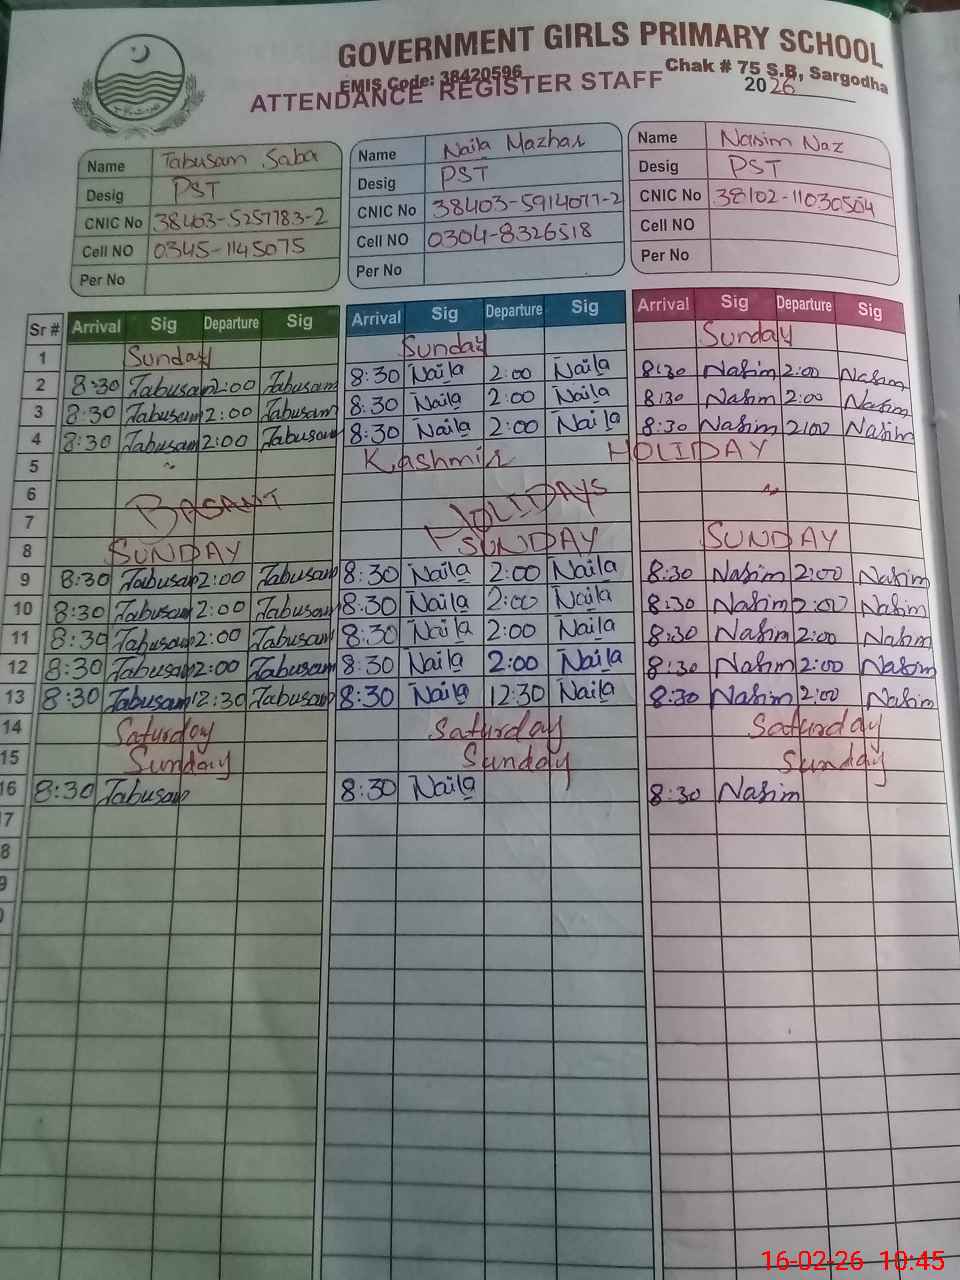 GOVERNMENT GIRLS PRIMARY SCHOOL
EMIS Code: 38420596 Chak # 75 S.B, Sargodha
ATTENDANCE REGISTER STAFF 2026
Name Tabusam Saba Name Naila Mazhar Name Nasim Naz
Desig PST Desig PST Desig PST
CNIC No 38403-5257783-2 CNIC No 38403-5914077-2 CNIC No 38102-11030504
Cell NO 0345-1145075 Cell NO 0304-8326518 Cell NO
Per No Per No Per No
Sr # Arrival Sig Departure Sig Arrival Sig Departure Sig Arrival Sig Departure Sig
1 Sunday Sunday Sunday
2 8:30 Tabusam 2:00 Tabusam 8:30 Naila 2:00 Naila 8:30 Nasim 2:00 Nasim
3 8:30 Tabusam 2:00 Tabusam 8:30 Naila 2:00 Naila 8:30 Nasim 2:00 Nasim
4 8:30 Tabusam 2:00 Tabusam 8:30 Naila 2:00 Naila 8:30 Nasim 2:00 Nasim
5 Kashmir HOLIDAY
6 BASANT HOLIDAYS
7
8 SUNDAY SUNDAY SUNDAY
9 8:30 Tabusam 2:00 Tabusam 8:30 Naila 2:00 Naila 8:30 Nasim 2:00 Nasim
10 8:30 Tabusam 2:00 Tabusam 8:30 Naila 2:00 Naila 8:30 Nasim 2:00 Nasim
11 8:30 Tabusam 2:00 Tabusam 8:30 Naila 2:00 Naila 8:30 Nasim 2:00 Nasim
12 8:30 Tabusam 2:00 Tabusam 8:30 Naila 2:00 Naila 8:30 Nasim 2:00 Nasim
13 8:30 Tabusam 12:30 Tabusam 8:30 Naila 12:30 Naila 8:30 Nasim 2:00 Nasim
14 Saturday Saturday Saturday
15 Sunday Sunday Sunday
16 8:30 Tabusam 8:30 Naila 8:30 Nasim
7
8
9
16-02-26 10:45